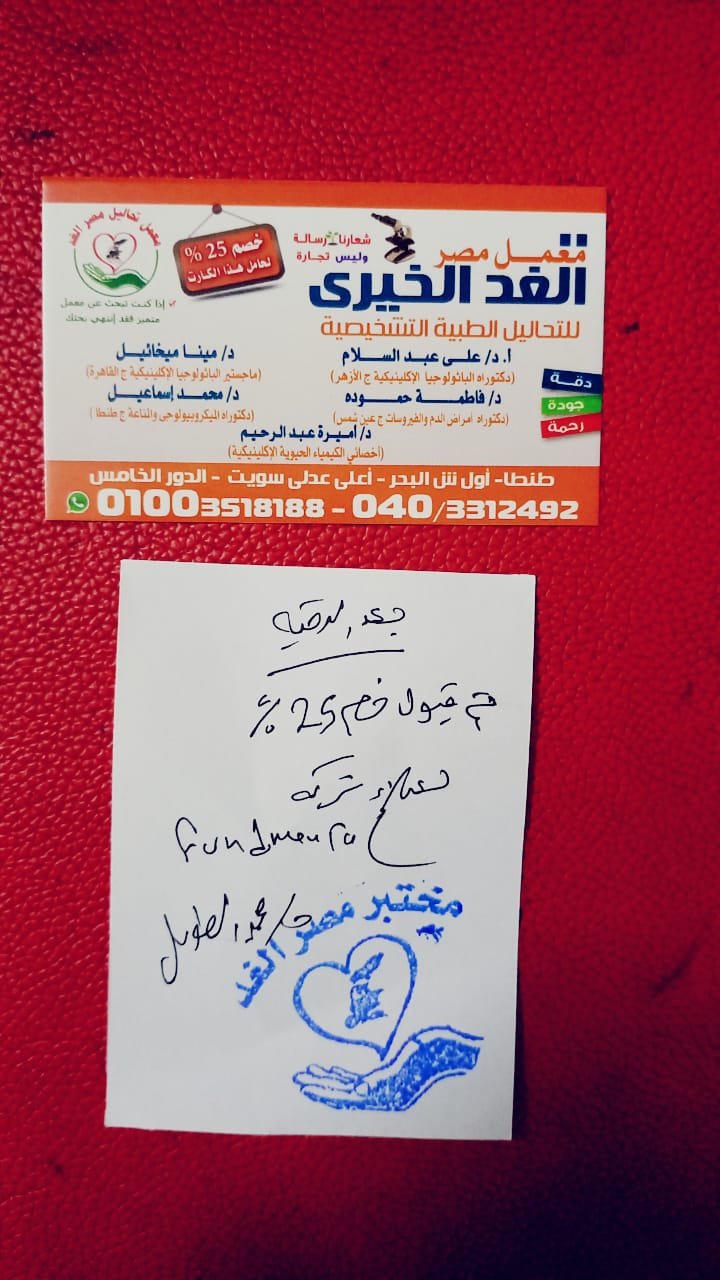 معمل تحاليل مصر الغد
خصم 25 %
لحامل هذا الكارت
إذا كنت تبحث عن معمل
متميز فقد إنتهي بحثك
شعارنا رسالة
وليس تجارة
معمل مصر
الغد الخيرى
للتحاليل الطبية التشخيصية
أ. د/ على عبد السلام
(دكتوراه الباثولوجيا الإكلينيكية ج الأزهر)
د/ مينا ميخائيل
(ماجستير الباثولوجيا الإكلينيكية ج القاهرة)
د/ فاطمة حموده
(دكتوراه أمراض الدم والفيروسات ج عين شمس)
د/ محمد إسماعيل
(دكتوراه الميكروبيولوجى والمناعة ج طنطا)
د/ أميرة عبد الرحيم
(أخصائي الكيمياء الحيوية الإكلينيكية)
دقة
جودة
رحمة
طنطا- أول ش البدر - أعلى عدلى سويت - الدور الخامس
01003518188 - 040/3312492
بعد
تم قبول خصم 25 %
لعملاء شركة
مختبر مصر الغد